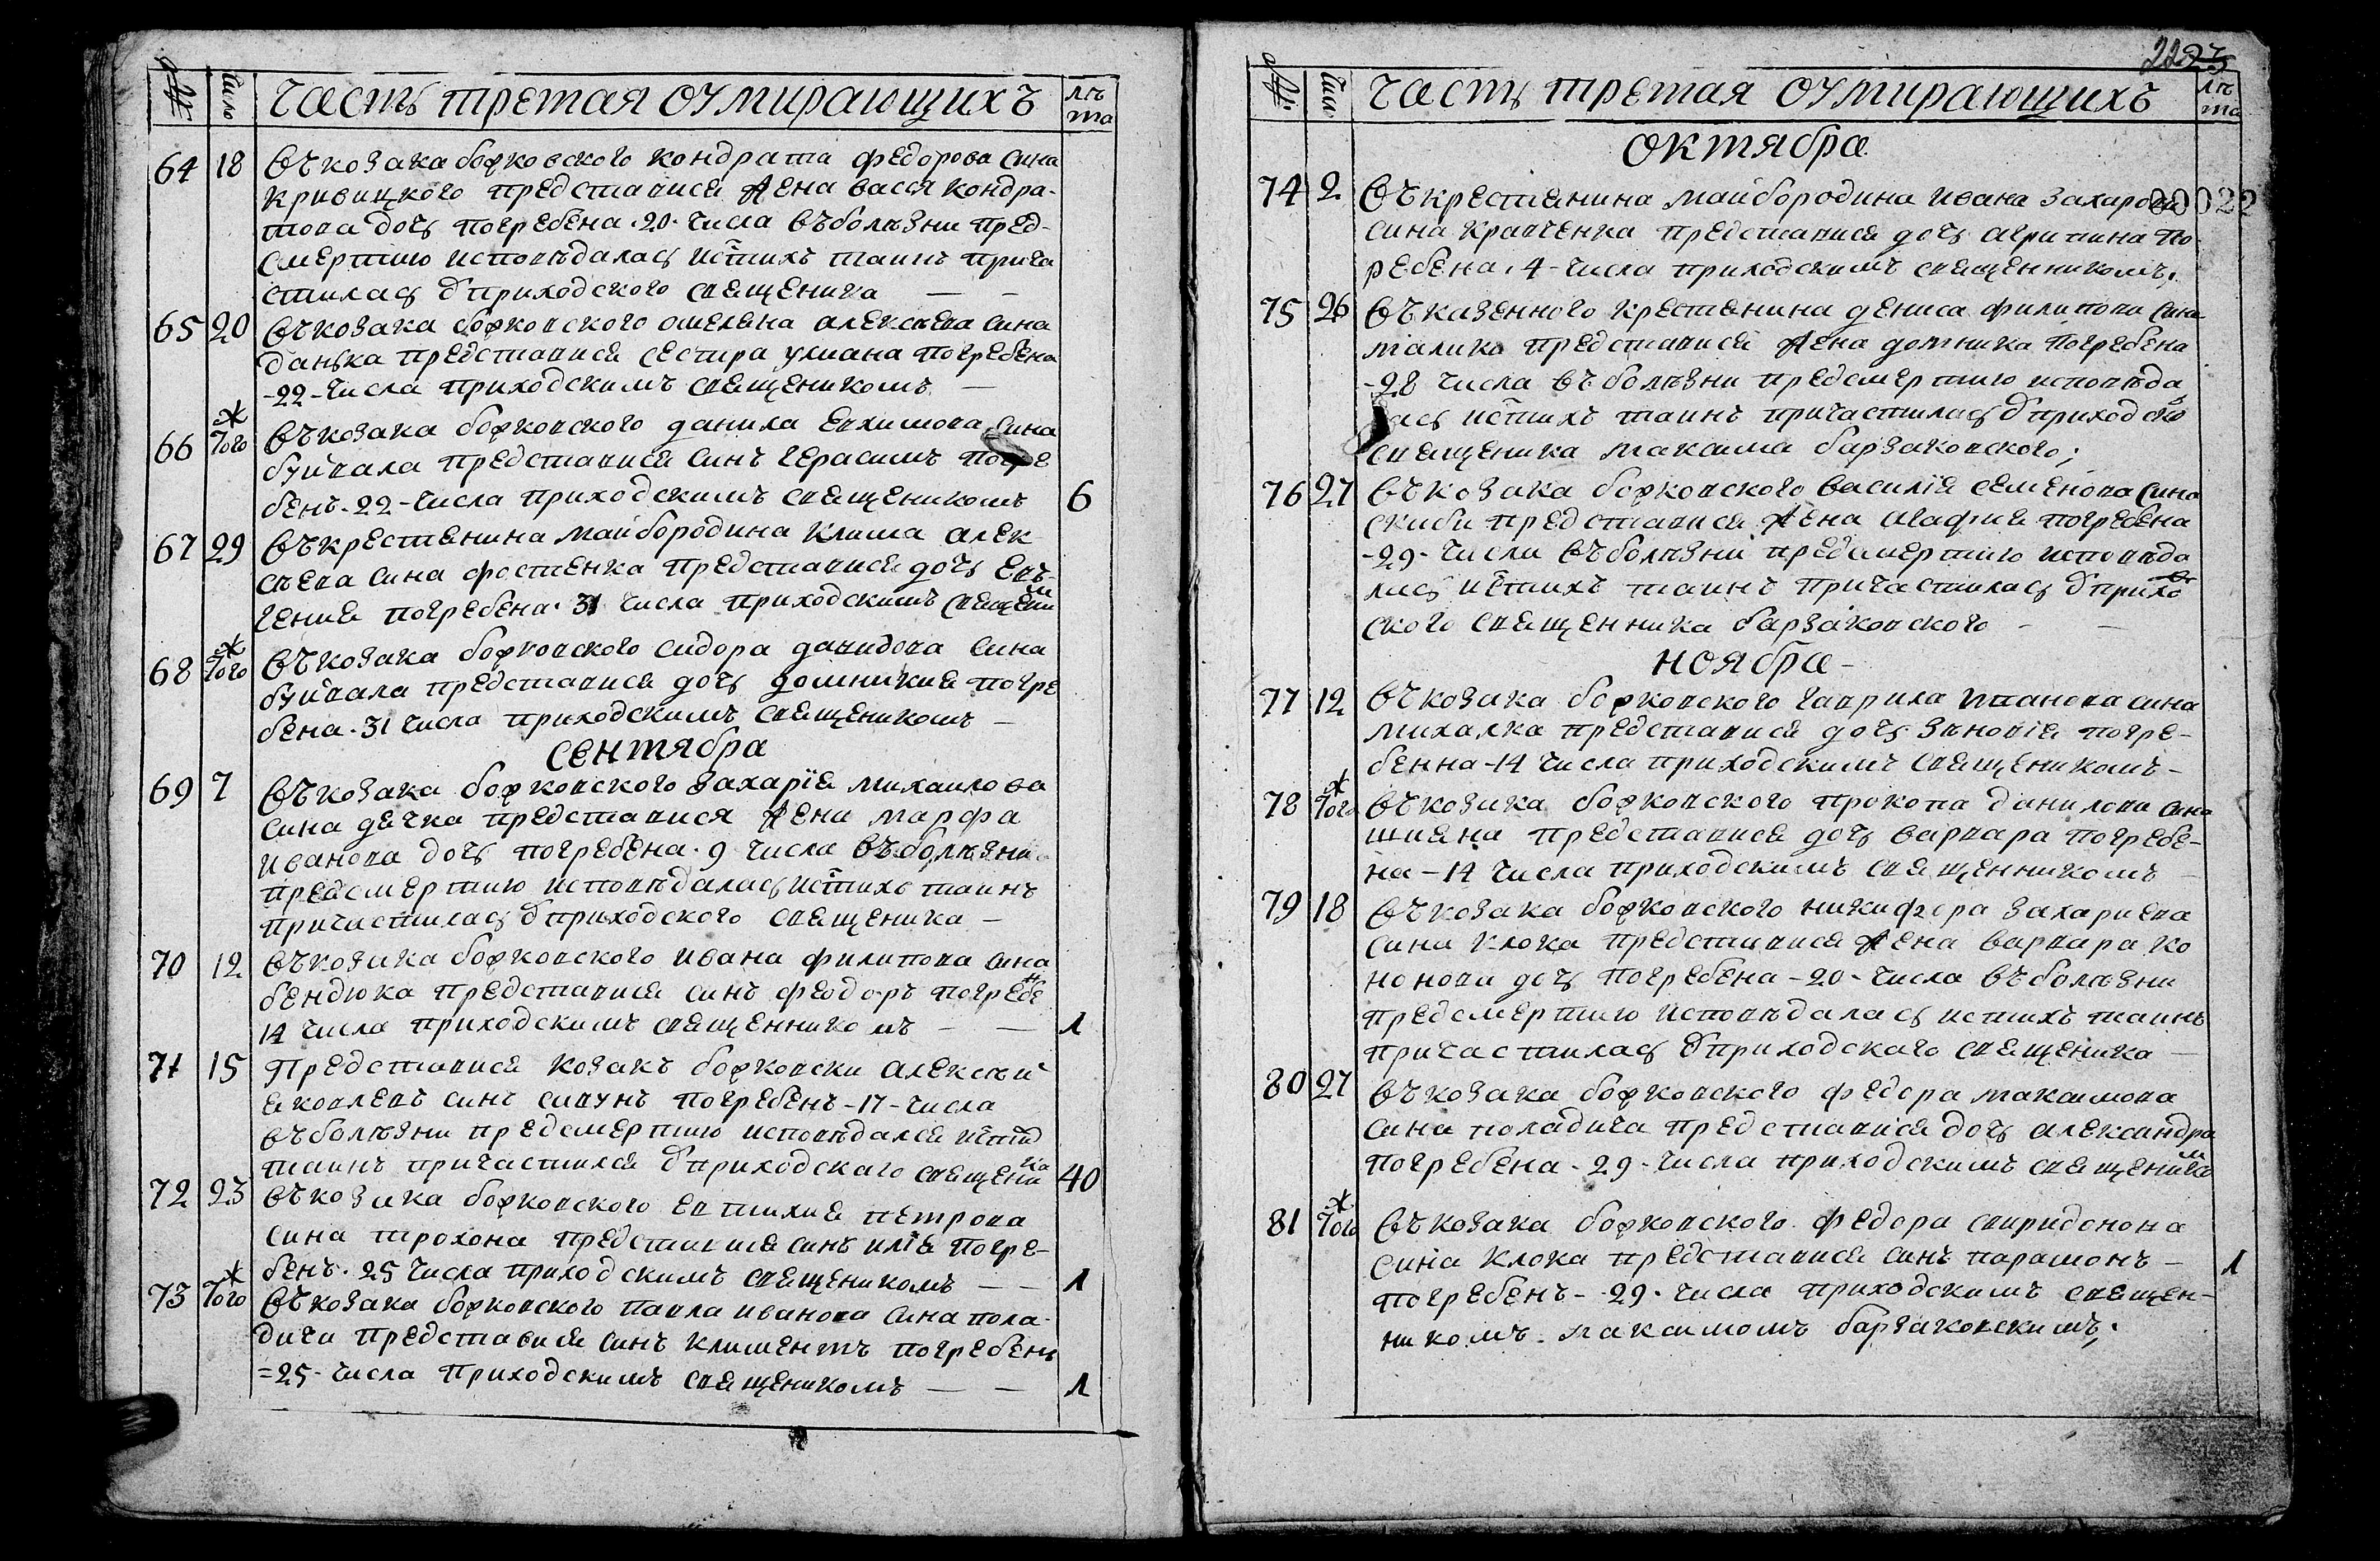 № Число Часть третая оумирающихъ лѣта
64 18 Въ козака борковского кондрата федорова сина
кривицкого представися жена вася кондра-
това дочь погребена 20 числа въ болѣзни пред-
смертию исповѣдалась и стихъ таинъ прича
стилась ѿ приходского свещеника
65 20 Въ козака борковского омеляна алексѣева сина
данька представися сестра улиана погребена
-22- числа приходскимъ свещеникомъ
66 Того ж Въ козака борковского данила евхимова сина
буйвала представися синъ герасимъ погре
бенъ 22 числа приходскимъ свещеникомъ 6
67 29 Въ крестянина майбородина клима алек
сѣева сина фостенка представися дочь евъ-
гения погребена 31 числа приходскимъ свещеним
68 Того ж Въ козака борковского сидора давидова сина
буйвала представися дочь домникия погре
бена 31 числа приходскимъ свещеникомъ
сентябра
69 7 Въ козака борковского захарїя михаилова
сина дячка представися жена марфа
иванова дочь погребена 9 числа въ болѣзни
предсмертию исповѣдалась и стихъ таинъ
причастилась ѿ приходского свещеника
70 12 Въ козака борковского ивана филипова сина
бендюка представися синъ феодоръ погребен
14 числа приходскимъ свещенникомъ 1
71 15 Представися козакъ борковски алексѣй
яковлевъ синъ сивунъ погребенъ -17- числа
въ болѣзни предсмертию исповѣдался и стих
таинъ причастился ѿ приходскаго свещеника 40
72 23 Въ козака борковского евтихия петрова
сина трохона представися синъ илїя погре-
бенъ 25 числа приходскимъ свещеникомъ 1
73 Того ж Въ козака борковского павла иванова сина пола-
дичи представися синъ климентъ погребенъ
=25- числа приходскимъ свещеникомъ 1
22 23
№ Число Часть третая оумирающихъ лѣта
октябра
74 2 Въ крестянина майбородина ивана захарова 00022
сина кравченка представися дочь агрипина по
ребена 4 числа приходскимъ свещенникомъ.
75 26 Въ казенного крестянина дениса филипова сина
малика представися жена домника погребена
-28 числа въ болѣзни предсмертию исповѣда
ась и стихъ таинъ причастилась ѿ приходского
свещеника максима барзаковского;
76 27 Въ козака борковского василїя семенова сина
скиби представися жена агафия погребена
-29- числа въ болѣзни предсмертию исповѣда
лась и стихъ таинъ причастилась ѿ приход
ского свещенника барзаковского
ноябра
77 12 Въ козака борковского гаврила иванова сина
михалка представися дочь зѣновїя погре-
бенна -14 числа приходскимъ свещеникомъ
78 Того ж Въ козака борковского прокопа данилова сина
шияна представися дочь варвара погребе-
на -14 числа приходскимъ свещенникомъ
79 18 Въ козака борковского никифора захариева
сина клока представися жена варвара ко
нонова дочь погребена -20- числа въ болѣзни
предсмертию исповѣдалась и стихъ таинъ
причастилась ѿ приходскаго свещеника
80 27 Въ козака борковского федора максимова
сина поладича представися дочь александра
погребена -29- числа приходскимъ свещеником
81 Того ж Въ козака борковского федора свиридонова
сина клока представися синъ парамонъ 1
погребенъ -29- числа приходскимъ свещен-
никомъ максимомъ барзаковскимъ;